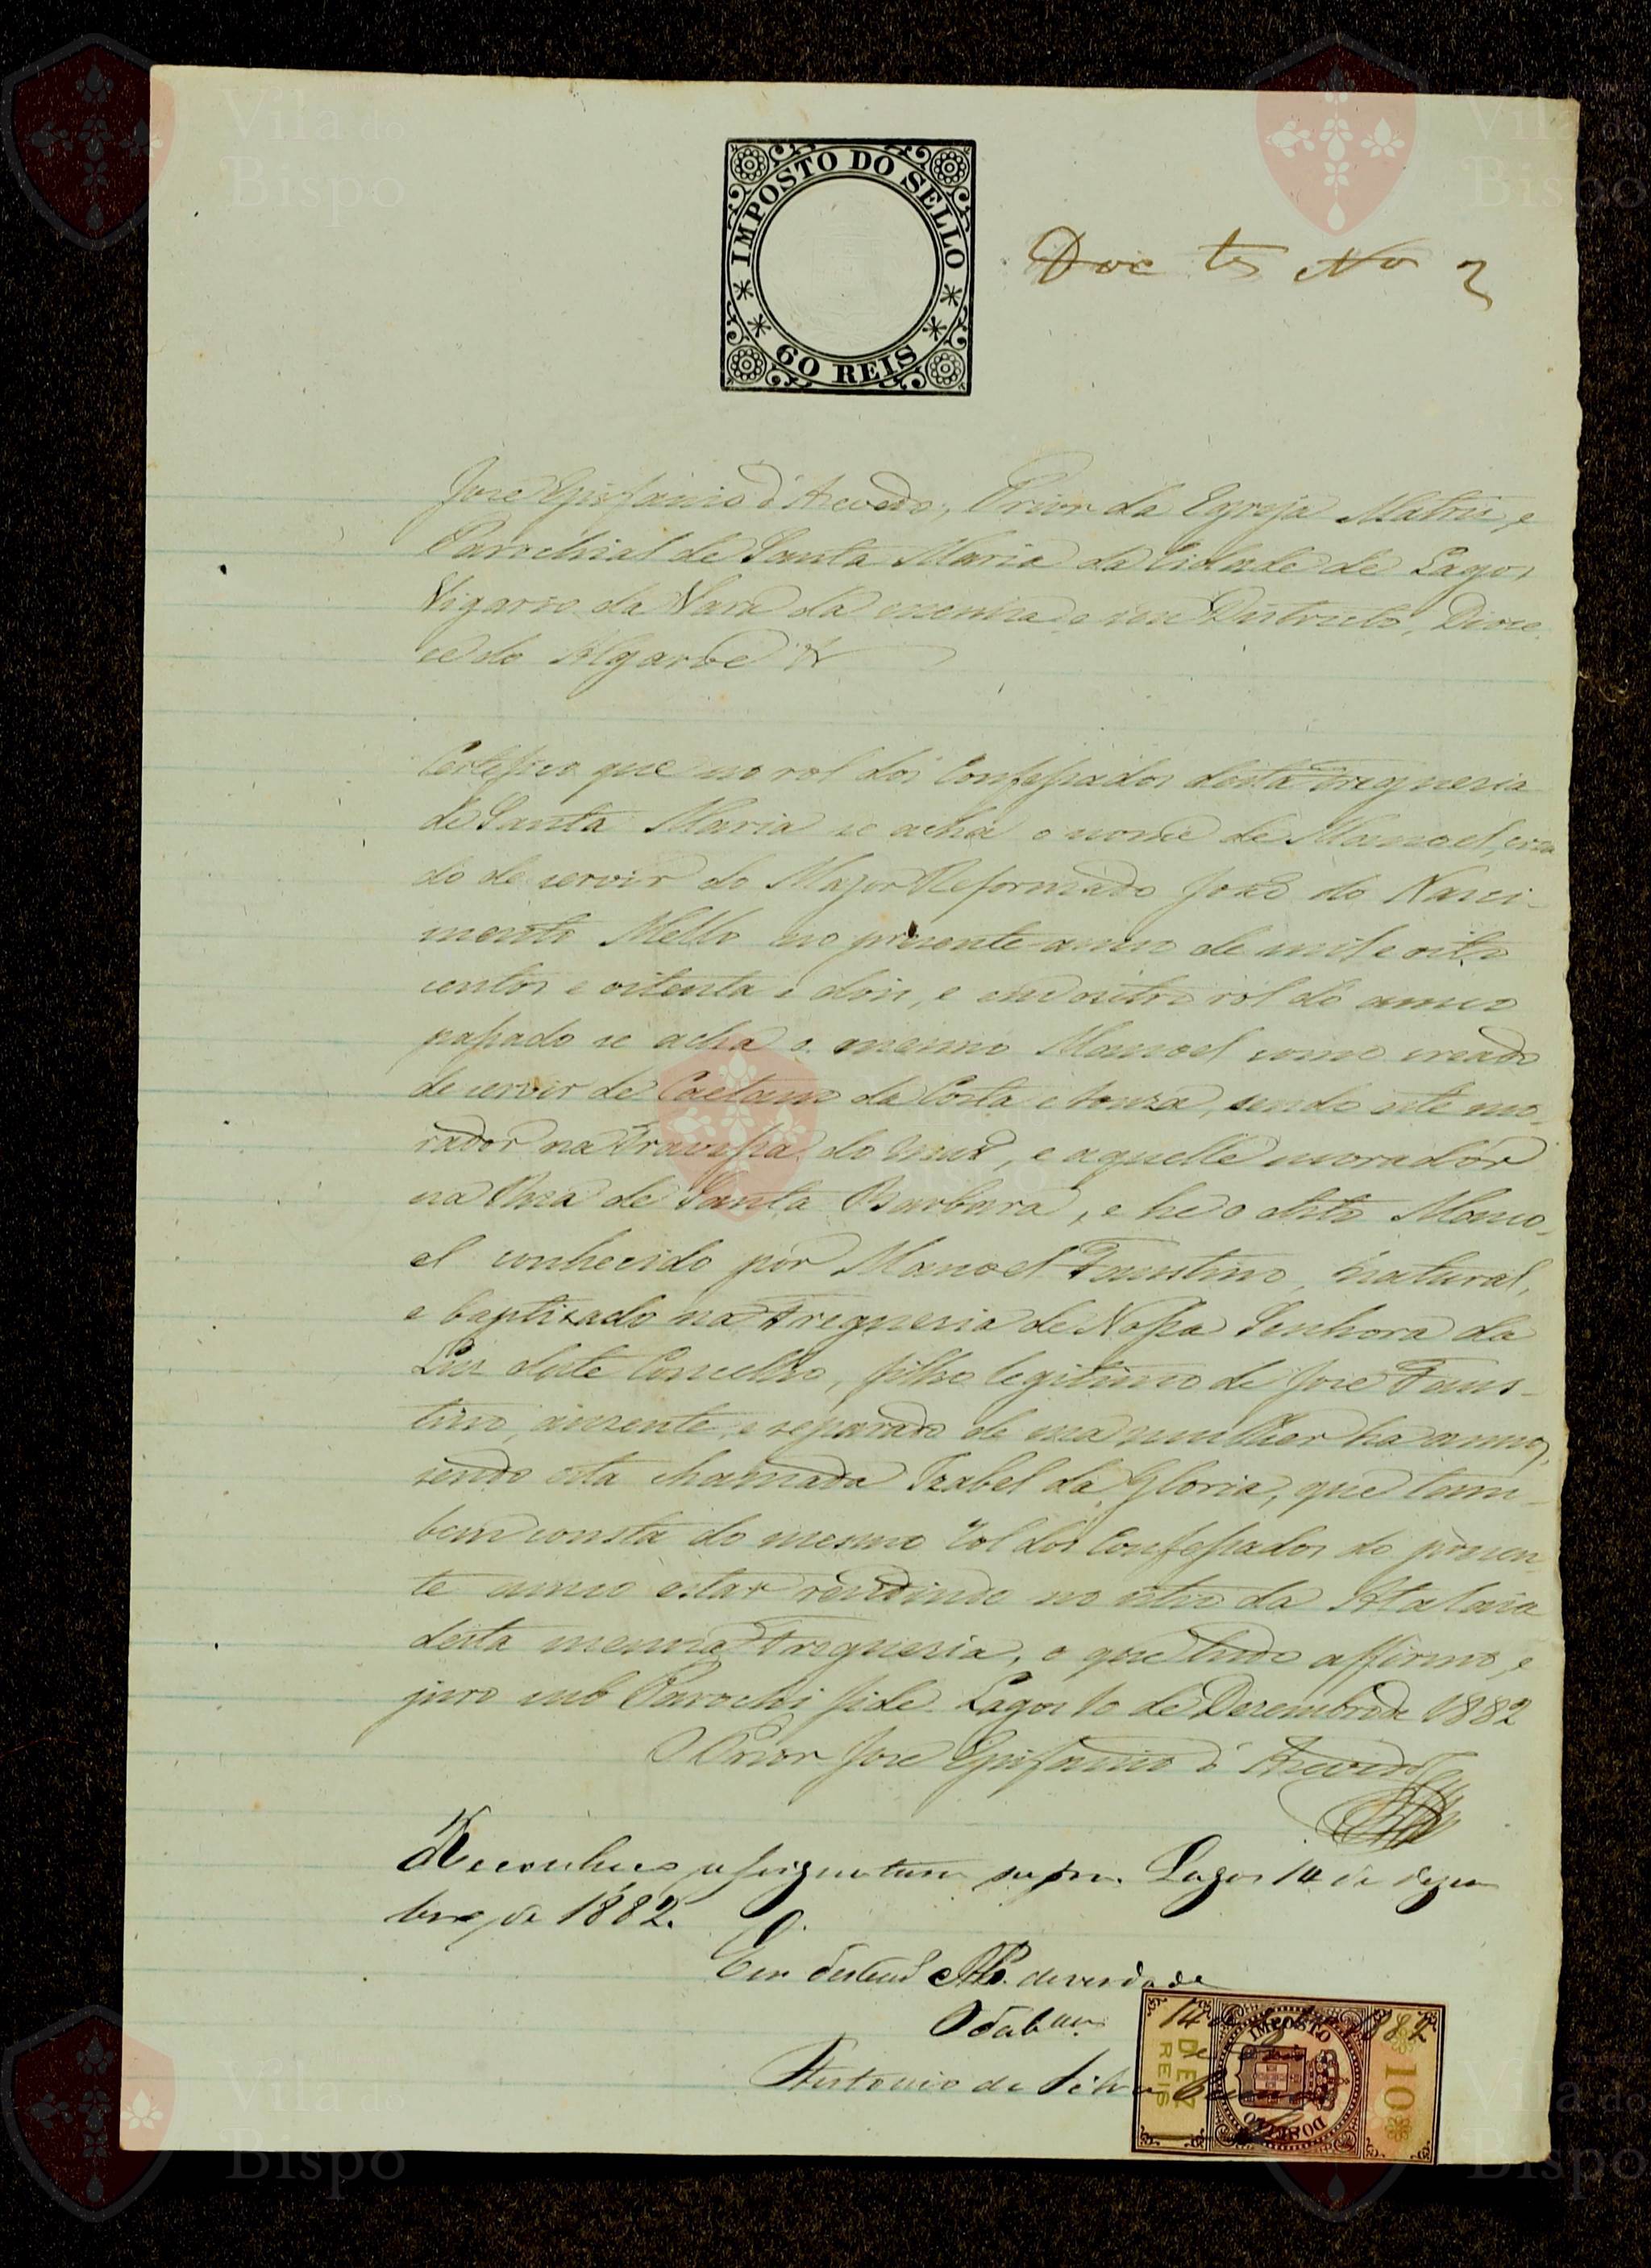 Vila do
Bispo
Vila do
Bispo
IMPOSTO DO SELLO
60 REIS
Doc to No 3
José Epifanio d'Azevedo, Prior da Egreja Matriz, e
Parochial de Santa Maria da Cidade de Lagos
Vigario da Vara da mesma e seu Districto, Dioce
se do Algarve &
Certifico que no rol dos Confessados desta Freguesia
de Santa Maria se acha o nome de Manoel, cria
do de servir do Major Reformado José do Nasci-
mento Mello no presente anno de mil e oito
centos e oitenta e dois, e em outro rol do anno
passado se acha o mesmo Manoel como creado
de servir de Caetano da Costa e Souza, sendo este mo-
rador na Travessa do, e aquelle morador
na Rua de Santa Barbara, e he o dito Mano-
el conhecido por Manoel Faustino, natural,
e baptizado na Freguesia de Nossa Senhora da
Luz deste Concelho, filho legitimo de José Faus-
tino, auzente, e separado de sua mulher ha annos,
sendo esta chamada Izabel da Gloria, que tam-
bem consta do mesmo Rol dos Confessados do prezen
te anno estar rezidindo no sitio da Atalaia
desta mesma Freguesia, o que tudo affirmo, e
juro sub Parochi fide. Lagos 10 de Dezembro de 1882
O Prior José Epifanio d'Azevedo
Reconheço a assignatura supra. Lagos 14 de dezem
bro de 1882.
Em test.º de verdade
O Tab.am
Antonio da Silva
14 de 1882
IMPOSTO
DO SELLO
DEZ
REIS
10
Vila do
Bispo
Vila do
Bispo
Vila do
Bispo